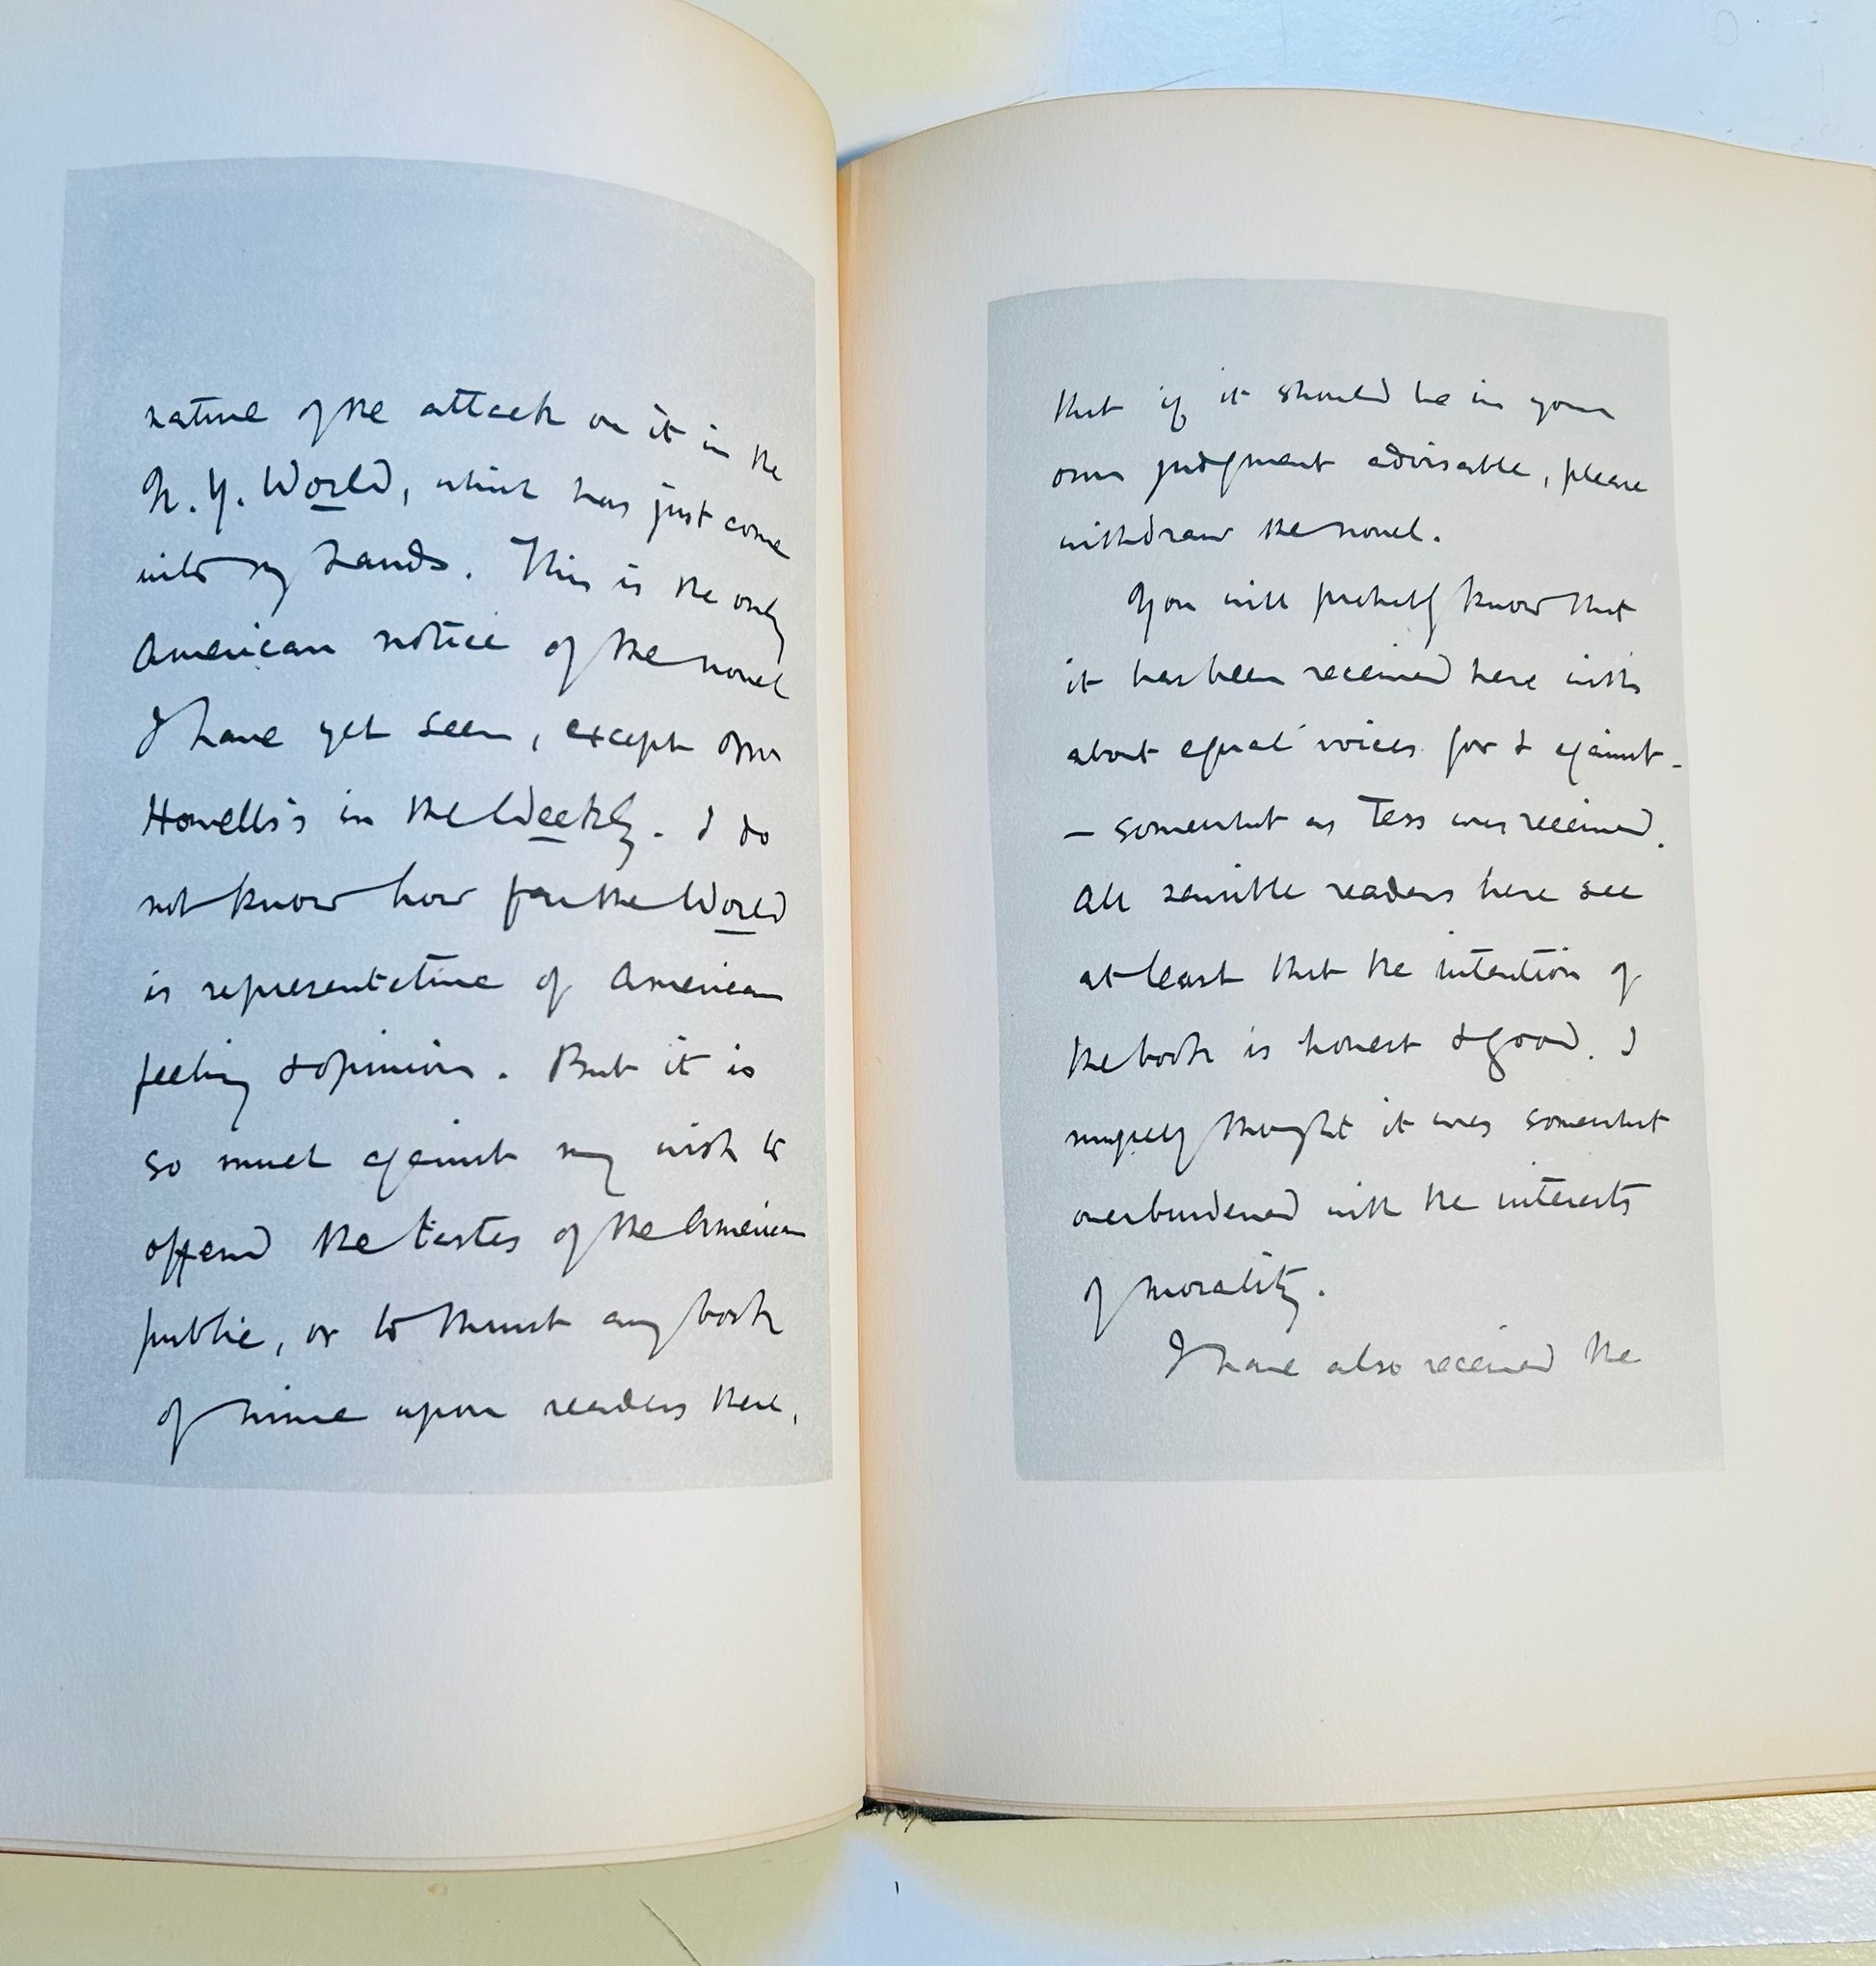 nature of the attack on it in the
N. Y. World, which has just come
into my hands. This is the only
American notice of the novel
I have yet seen, except
Howells's in the Weekly. I do
not know how far the World
is representative of American
feeling & opinion. But it is
so much against my wish to
offend the tastes of the American
public, or to thrust any book
of mine upon readers there,
that if it should be in your
own judgment advisable, please
withdraw the novel.
You will probably know that
it has been received here with
about equal voices for & against -
— somewhat as Tess was received.
All sensible readers here see
at least that the intention of
the book is honest & good. I
myself thought it was somewhat
overburdened with the interests
of morality.
I have also received the